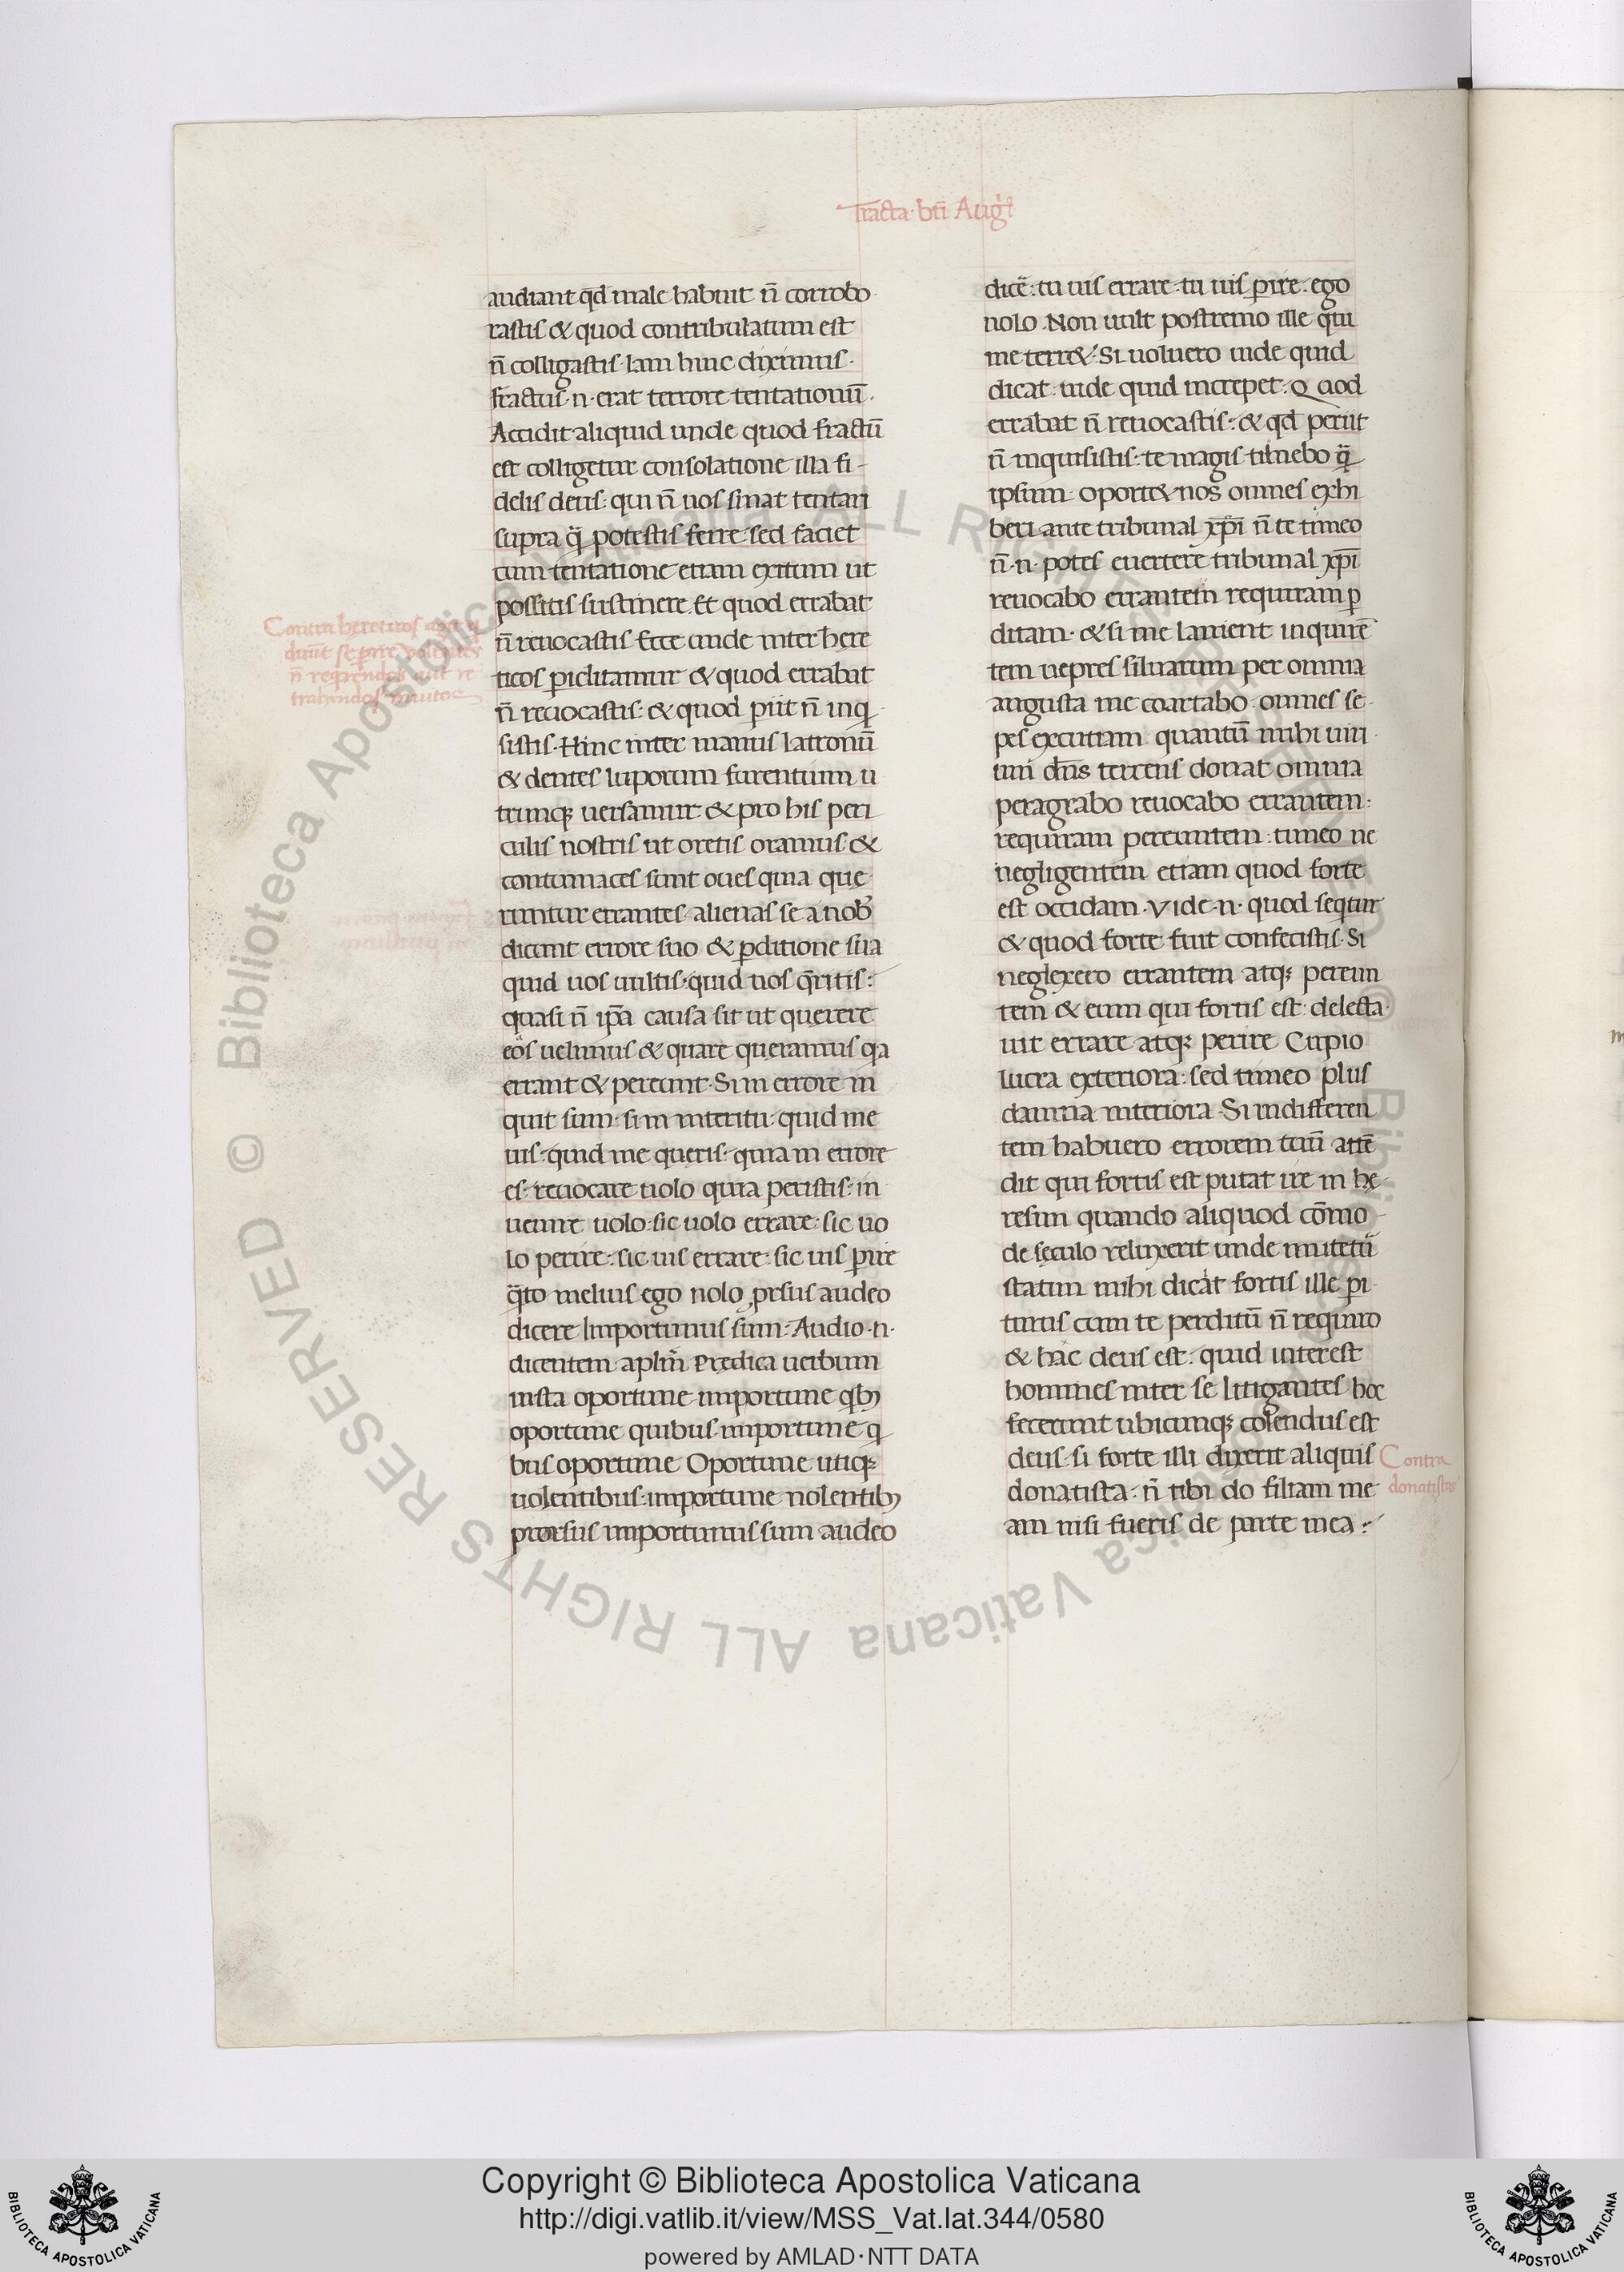 Tracta. bt̄i Aug̾i
audiant qd̄ male habuit n̄ corrobo
rastis & quod contribulatum est
n̄ colligastis. Iam hinc diximus.
fractus .n. erat terrore tentationū.
Accidit aliquid unde quod fractū
est colligetur consolatione illa fi-
delis deus: qui n̄ uos sinat tentari
supra q̄ potestis ferre: sed faciet
cum tentatione etiam exitum ut
possitis sustinere. Et quod errabat
n̄ reuocastis Ecce unde inter here
ticos periclitamur & quod errabat
n̄ reuocastis: & quod piit n̄ inq
sistis. Hinc inter manus latronū
& dentes luporum furentium u
trimq; uersamur: & pro his peri
culis nostris ut oretis oramus: &
contumaces sunt oues quia que
runtur errantes. alienas se a nob̾
dicunt errore suo & pditione sua
quid uos uultis: quid uos q̄ritis:
quasi n̄ ip̄a causa sit ut querere
eos uelimus & quare queramus qa
errant & pereunt. Si in errore in
quit sum: si in interitu: quid me
uis: quid me queris: quia in errore
es: reuocare uolo quia peristis: in
uenire uolo: sic uolo errare: sic uo
lo perire: sic uis errare: sic uis pire
q̄to melius ego nolo, prsus audeo
dicere Importunus sum: Audio .n.
dicentem aplm̄. Predica uerbum
insta oportune importune qb;
oportune quibus importune q
bus oportune Oportune utiq;
uolentibus: importune nolentib;
prorsus importunus sum audeo
Contra hereticos
trahendos
dicē: tu uis errare: tu uis pire: ego
nolo. Non uult postremo ille q̄ tu
me terre&. Si uoluero uide quid
dicat: uide quid increpet: Quod
errabat n̄ reuocastis: & qd̄ periit
n̄ inquisistis: te magis timebo q̄
ipsum. Oport& nos omnes exhi
beri ante tribunal xp̄i n̄ te timeo
n̄ .n. potes euertere tribunal xp̄i
reuocabo errantem requiram p
ditam. & si me lanient inquirē
tem uepres siluarum per omnia
angusta me coartabo. omnes se
pes excutiam. quantū mihi uiri
um dn̄s terrens donat omnia
peragrabo reuocabo errantem:
requiram pereuntem: timeo ne
negligentem etiam quod forte
est occidam. Vide .n. quod seqtur
& quod forte fuit confecistis. Si
neglexero errantem atq; pereun
tem & eum qui fortis est: delecta
uit errare atq; perire Cupio
lucra exteriora: sed timeo plus
damna interiora. Si indifferen
tem habuero errorem tuū attē
dit qui fortis est putat ire in hę
resim quando aliquod cōmo
de seculo relinxerit unde mutetū
statim mihi dicat fortis ille pi
turus cum te perditū n̄ requiro
& hac deus est: quid interest
homines inter se litigantes hoc
fecerunt ubicumq; colendus est
deus. si forte illi dixerit aliquis
donatista: n̄ tibi do filiam me
am nisi fueris de parte mea:
Contra
donatistas
Copyright © Biblioteca Apostolica Vaticana
http://digi.vatlib.it/view/MSS_Vat.lat.344/0580
powered by AMLAD·NTT DATA
BIBLIOTECA APOSTOLICA VATICANA
BIBLIOTECA APOSTOLICA VATICANA
© Biblioteca Apostolica Vaticana ALL RIGHTS RESERVED © Biblioteca Apostolica Vaticana ALL RIGHTS RESERVED